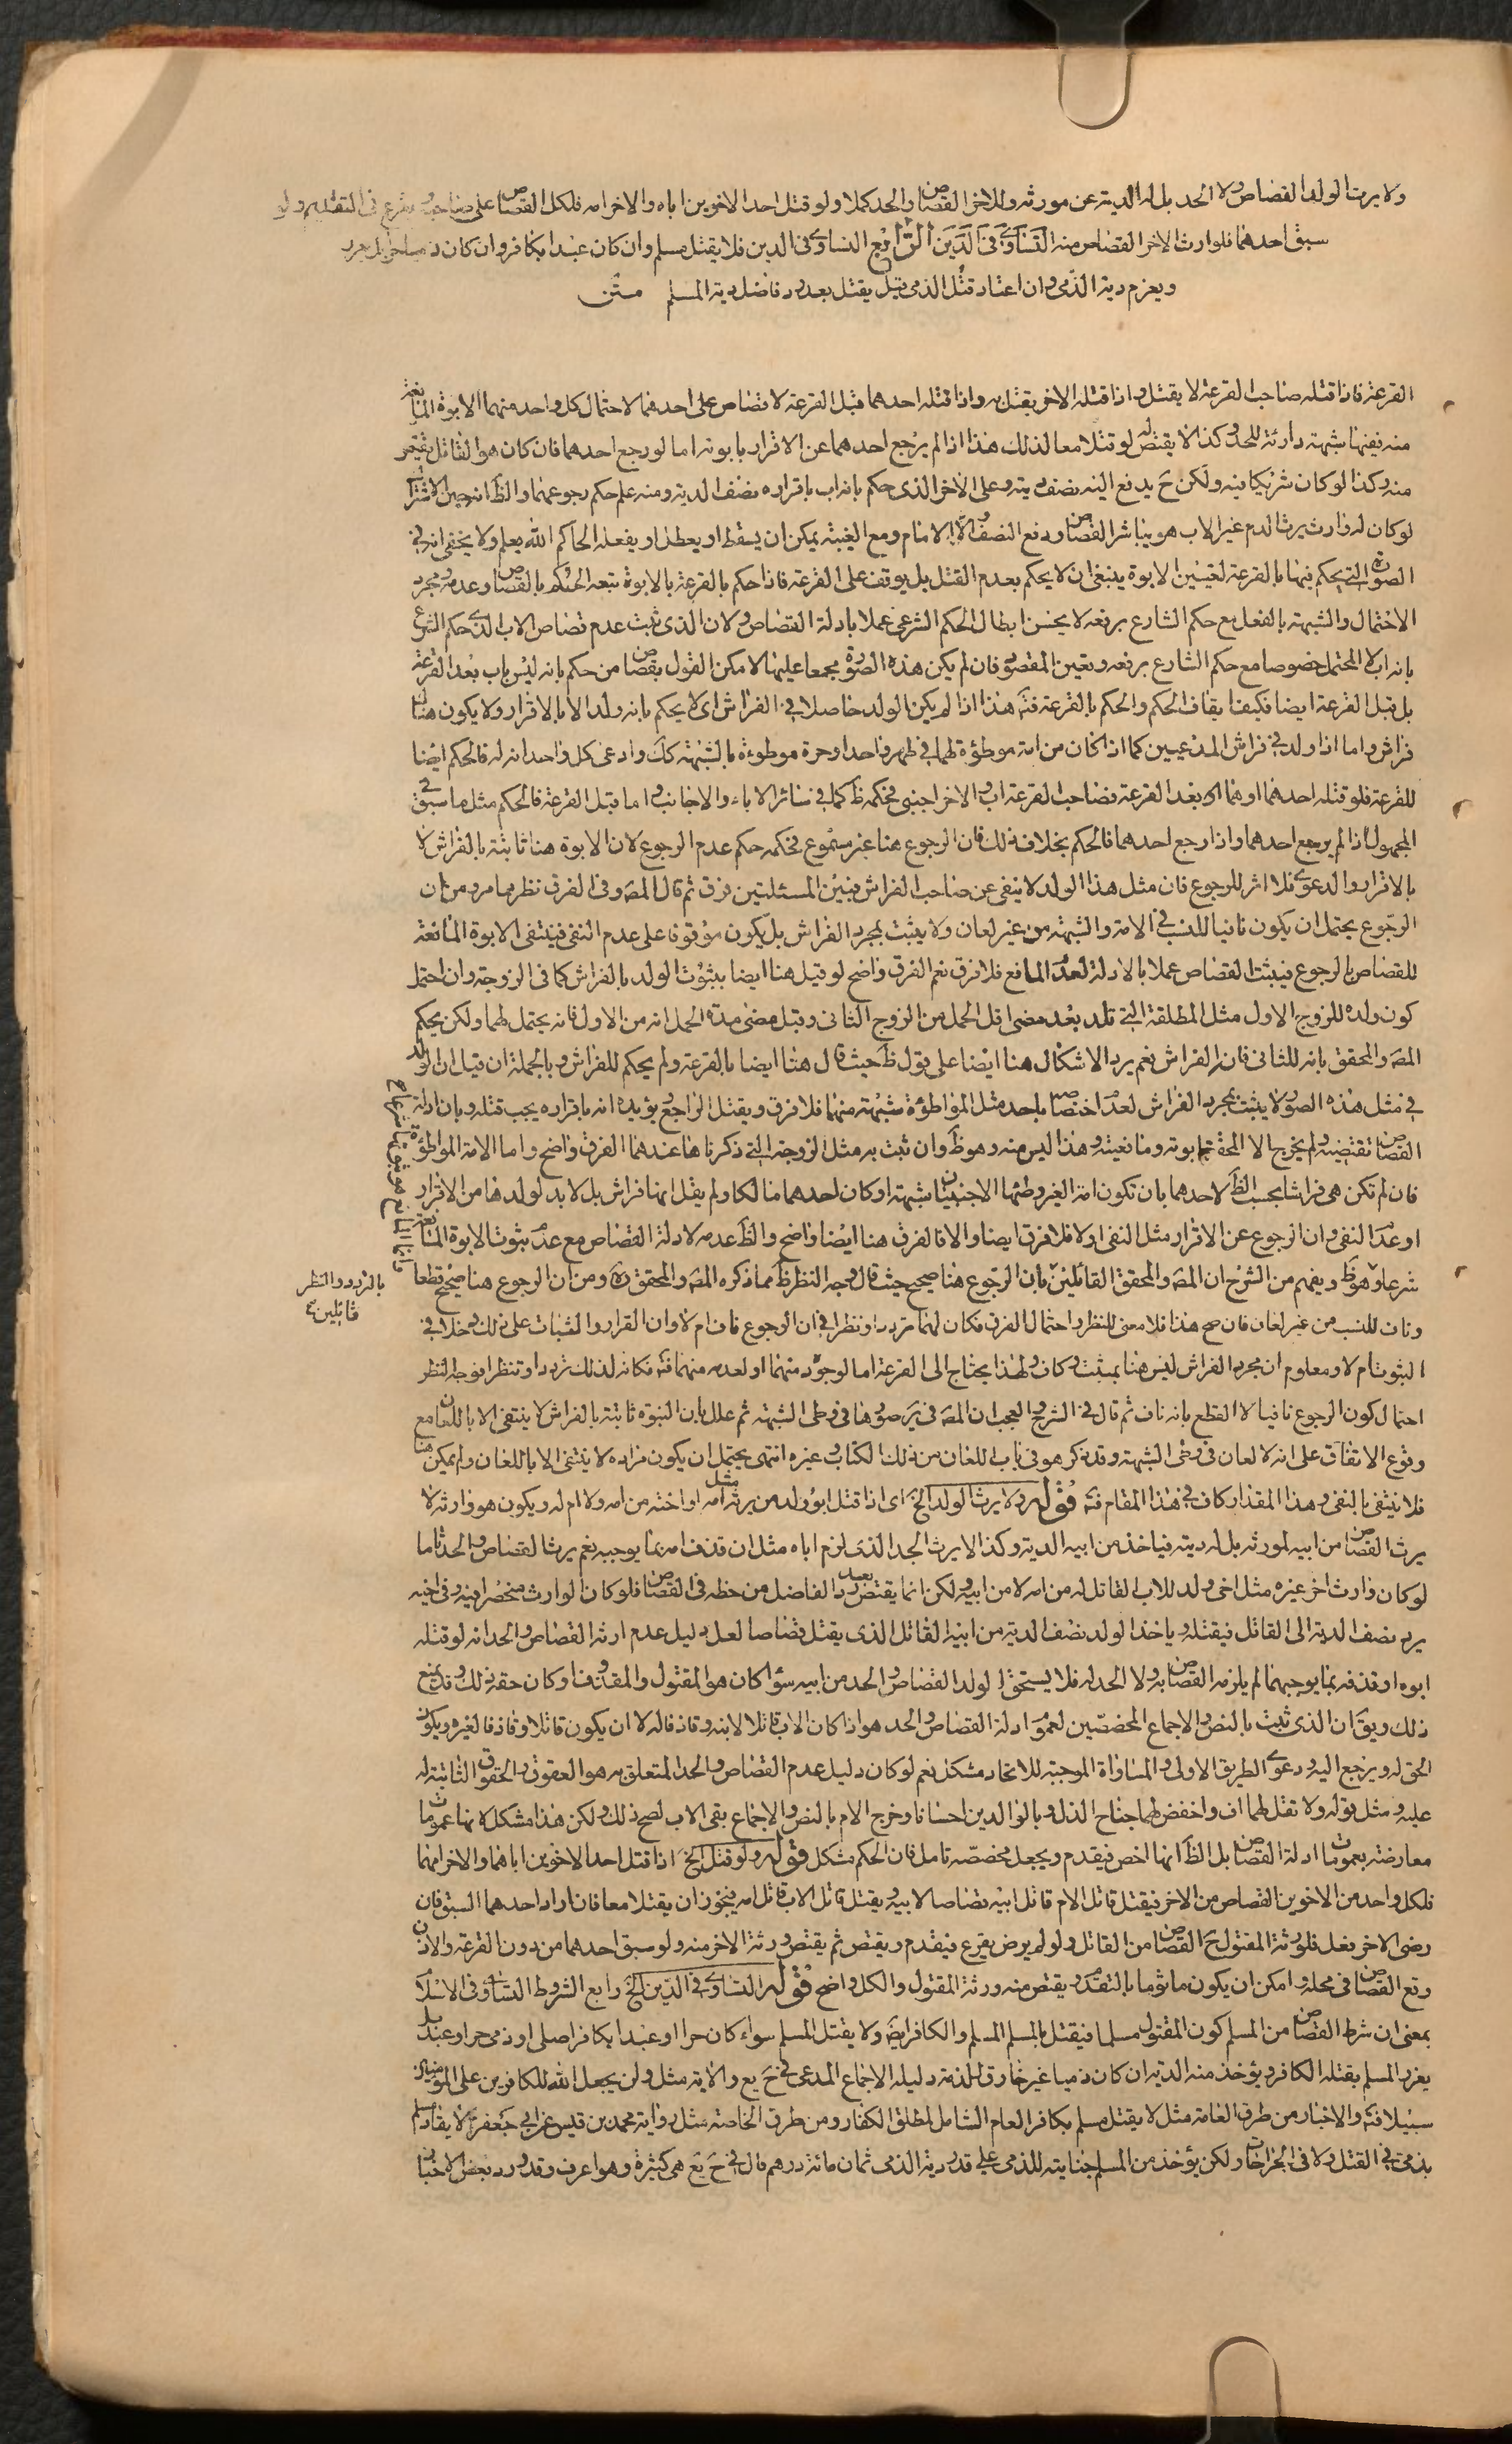 ولا يرث الولد القصاص ولا الحد بل له الدية عن مورثه وللاخر القصاص والحد كملا ولو قتل احد الاخوين اباه والاخر امه فلكل القصاص على صاحبه يقرع فى التقديم ولو
سبق احدهما فلوارث الاخر القصاص منه التساوى فى الدين الرابع التساوى فى الدين فلا يقتل مسلم وان كان عبدا بكافر وان كان ذميا حرا بل يعزر
ويغرم دية الذمى وان اعتاد قتل الذمى قيل يقتل بعد رد فاضل دية المسلم متن
القرعة فاذا قتله صاحب القرعة لا يقتل واذا قتله الاخر يقتل به واذا قتله احدهما قبل القرعة لا قصاص على احدهما لاحتمال كل واحد منهما الابوة المانعة
منه ففيها شبهة دارئة للحد وكذا لا يقتص لو قتلا معا لذلك هذا اذا لم يرجع احدهما عن الاقرار بابوته اما لو رجع احدهما فان كان هو القاتل فيقتص
منه وكذا لو كان شريكا فيه ولكن ح يدفع اليه نصف ديته وعلى الاخر الذى حكم بانه اب باقراره نصف الدية ومنه علم حكم رجوعهما والظ انه حين الاشتراك
لو كان له وارث يرث الدم غير الاب هو يباشر القصاص ودفع النصف والا الامام ومع الغيبة يمكن ان يسقط او يعطل او يفعله الحاكم الله يعلم ولا يخفى انه فى
الصورة التى يحكم فيها بالقرعة لتعيين الابوة ينبغى ان لا يحكم بعدم القتل بل يوقف على القرعة فاذا حكم بالقرعة بالابوة يتبعه الحكم بالقصاص وعدمه ومجرد
الاحتمال والشبهة بالفعل مع حكم الشارع برفعه لا يحسن ابطال الحكم الشرعى عملا بادلة القصاص ولان الذى يثبت عدم قصاص الاب الذى حكم الشرع
بانه اب لا المحتمل خصوصا مع حكم الشارع برفعه وتعين المقصود فان لم يكن هذه الصورة مجمعا عليها لامكن القول بقصاص من حكم بانه ليس باب بعد القرعة
بل قبل القرعة ايضا فكيفنا يقاف الحكم والحكم بالقرعة فت هذا اذا لم يكن الولد حاصلا فى الفراش اى لا يحكم بانه ولد الا بالاقرار ولا يكون هناك
فراش واما اذا ولد فى فراش المدعيين كما اذا كان من امة موطؤة لهما فى طهر واحد او حرة موطوءة بالشبهة كك وادعى كل واحد انه له فالحكم ايضا
للقرعة فلو قتله احدهما او هما اى بعد القرعة فصاحب القرعة اب والاخر اجنبى فحكمه ظ كما فى سائر الاباء والاجانب واما قبل القرعة فالحكم مثل ما سبق فى
المجهول اذا لم يرجع احدهما واذا رجع احدهما فالحكم بخلاف ذلك فان الرجوع هنا غير مسموع فحكمه حكم عدم الرجوع لان الابوة هنا ثابتة بالفراش لا
بالاقرار والدعوى فلا اثر للرجوع فان مثل هذا الولد لا ينفى عن صاحب الفراش فبين المسئلتين فرق ثم قال المص وفى الفرق نظر مما مر ومن ان
الرجوع يحتمل ان يكون نافيا للنسب فى الامة والشبهة من غير لعان ولا يثبت بمجرد الفراش بل يكون موقوفا على عدم النفى فينتفى الابوة المانعة
للقصاص بالرجوع فيثبت القصاص عملا بالادلة لعدم المانع فلا فرق نعم الفرق واضح لو قيل هنا ايضا بثبوت الولد بالفراش كما فى الزوجة وان احتمل
كون ولده للزوج الاول مثل المطلقة التى تلد بعد مضى اقل الحمل من الزوج الثانى وقبل مضى مدة الحمل انه من الاول فانه يحتمل لهما ولكن يحكم
المص والمحقق بانه للثانى فان الفراش نعم يرد الاشكال هنا ايضا على قول ظ حيث قال هنا ايضا بالقرعة ولم يحكم للفراش وبالجملة ان قيل ان الولد
فى مثل هذه الصورة لا يثبت بمجرد الفراش لعدم اختصاصه باحد مثل المواطؤة شبهة منهما فلا فرق ويقتل الراجع يؤيده انه باقراره يجب قتله وبان ادلة
القصاص تقتضيه ولم يخرج الا المحقق ابوته ومانعيته وهذا ليس منه وهو ظ وان ثبت به مثل الزوجة التى ذكرناها عندهما الفرق واضح واما الامة الموطؤة
فان لم تكن هى فراشا بحسب الظ لاحدهما بان تكون امة الغير وطئها الاجنبيان شبهة او كان احدهما مالكا ولم يقل انها فراش بل لا بد لولدها من الاقرار
او عدم النفى وان الرجوع عن الاقرار مثل النفى او لا فلا فرق ايضا والا فالفرق هنا ايضا واضح والظ عدمه لادلة القصاص مع عدم ثبوت الابوة المانعة
شرعا وهو ظ ويفهم من الشرح ان المص والمحقق القائلين بان الرجوع هنا صحيح حيث قال وجه النظر ظ مما ذكره المص والمحقق ره ومن ان الرجوع هنا صحيح قطعا
وناف للنسب من غير لعان فان صح هذا فلا معنى للنظر واحتمال الفرق فكان لهما تردد او نظر فى ان الرجوع ناف ام لا وان القرار والثبات على ذلك دخلا فى
الثبوت ام لا ومعلوم ان مجرد الفراش ليس هنا بمثبت وكاف ولهذا يحتاج الى القرعة اما لوجوده منهما او لعدمه منهما فت فكانه لذلك تردد او تنظر فوجه النظر
احتمال كون الرجوع نافيا لا القطع بانه ناف ثم قال فى الشرح والعجب ان المص فى ير صورها فى وطى الشبهة ثم علل بان البنوة ثابتة بالفراش لا ينتفى الا باللعان مع
وقوع الاتفاق على انه لا لعان فى وطى الشبهة وقد ذكر هو فى باب اللعان من ذلك الكتاب وغيره انتهى يحتمل ان يكون مراده لا ينتفى الا باللعان ولم يمكن هنا
فلا ينتفى بالنفى وهذا المقدار كاف فى هذا المقام فت قوله ولا يرث الولد الخ اى اذا قتل ابو ولد من يرثه مثل امه او اخته من امه ولا ام له ويكون هو وارثه لا
يرث القصاص من ابيه لمورثه بل له ديته فياخذ من ابيه الدية وكذا لا يرث الحد الذى لزم اباه مثل ان قذف امه بما يوجبه نعم يرث القصاص والحد تماما
لو كان وارث اخر غيره مثل اخى ولد للاب القاتل له من امه لا من ابيه ولكن انما يقتص بعد رد الفاضل من حظه فى القصاص فلو كان الوارث منحصرا فيه وفى اخيه
يرد نصف الدية الى القاتل فيقتله وياخذ الولد نصف الدية من ابيه القاتل الذى يقتل قصاصا لعل دليل عدم ارثه القصاص والحد انه لو قتله
ابوه او قذفه بما يوجبهما لم يلزمه القصاص به ولا الحد له فلا يستحق الولد القصاص والحد من ابيه سواء كان هو المقتول والمقذوف او كان حقه ذلك وقد يمنع
ذلك ويق ان الذى ثبت بالنص والاجماع المخصصين لعموم ادلة القصاص والحد هو اذا كان الاب قاتلا لابنه وقاذفا له لا ان يكون قاتلا وقاذفا لغيره ويكون
الحق له ويرجع اليه ودعوى الطريق الاولى والمساواة الموجبة للاتحاد مشكل نعم لو كان دليل عدم القصاص والحد المتعلق به هو العقوق والحقوق الثابتة له
عليه ومثل قوله ولا تقل لهما اف واخفض لهما جناح الذل وبالوالدين احسانا وخرج الام بالنص والاجماع بقى الاب لصح ذلك ولكن هذا مشكل لانها عمومات
معارضة بعمومات ادلة القصاص بل الظ انها اخص فيقدم ويجعل مخصصه تامل فان الحكم مشكل قوله ولو قتل الخ اذا قتل احد الاخوين اباهما والاخر امهما
فلكل واحد من الاخوين القصاص من الاخر فيقتل قاتل الام قاتل ابيه قصاصا لابيه ويقتل قاتل الاب قاتل امه فيجوز ان يقتلا معا فان اراد احدهما السبق فان
رضى الاخر فعل فلورثة المقتول ح القصاص من القاتل ولو لم يرض يقرع فيقدم ويقتص ثم يقتص ورثة الاخر منه ولو سبق احدهما من دون القرعة والاذن
وقع القصاص فى محله وامكن ان يكون ماثوما بالتقدم ويقتص منه ورثة المقتول والكل واضح قوله التساوى فى الدين الخ رابع الشروط التساوى فى الاسلام
بمعنى ان شرط القصاص من المسلم كون المقتول مسلما فيقتل بالمسلم المسلم والكافر ايضا ولا يقتل المسلم سواء كان حرا او عبدا بكافر اصلى او ذمى حر او عبد بل
يعزر المسلم بقتله الكافر ويؤخذ منه الدية ان كان ذميا غير خارق للذمة دليله الاجماع المدعى فى ح يع والاية مثل ولن يجعل الله للكافرين على المؤمنين
سبيلا فت والاخبار من طرق العامة مثل لا يقتل مسلم بكافر العام الشامل لمطلق الكفار ومن طرق الخاصة مثل رواية محمد بن قيس عن ابى جعفر ع لا يقاد مسلم
بذمى فى القتل ولا فى الجراحات ولكن يؤخذ من المسلم جنايته للذمى على قدر دية الذمى ثمان مائة درهم قال فى ح يع هى كثيرة وهو اعرف وقد ورد بعض الاخبار
بالتردد والنظر
قائلين